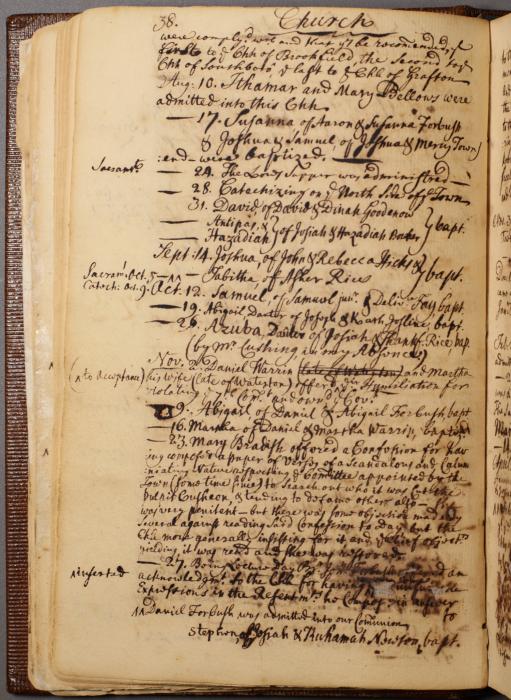 38. Church
were comply'd with and that they be recomended, first to ye Chh of Brookfield, the Second to ye
Chh of Southboro', & last to ye Chh of Grafton
Aug. 10. Ithamar and Mary Bellows were
admitted into this Chh.
— 17. Susanna of Aaron & Susanna Forbush
& Joshua & Samuel of Joshua & Mercy Town
end — were baptized.
Sacramt. — 24. The Lords Supper was administered —
— 28. Catechizing on ye North Side of ye Town
31. David, of David & Dinah Goodenow
— Antipas, &
— Hazadiah } of Josiah & Hazadiah } bapt.
Sept. 14. Joshua, of John & Rebecca Hicks } bapt.
Sacram. Oct. 5 — ^^ — Tabitha of Asher Rice
Catech. Oct. 9. Oct. 12. Samuel, of Samuel junr. & Deliv. Fay bapt
— 19. Abigail Daughter of Joseph & Josline, bapt.
— 26. Azuba, Daughter of Josiah & Thankf. Rice bap.
(by Mr. Cushing in my Absence)
Nov. 2. Daniel Warrin (late of Watertown) and Martha
(^ to Acceptance) his wife (late of Watertown) offer'd their Humiliation for
Violating ye 7th Com. and own'd ye Cov.
9. Abigail of Daniel & Abigail Forbush bapt
— 16. Martha of Daniel & Martha Warrin, baptiz'd
— 23. Mary Bradish offered a Confession for hav
ing compos'd a paper of Verses of a Scandalous and Calum
niating Nature respecting ye Committee appointed by the
Town (some time since) to Search out who it was Cut the
pulpit Cusheon, & tending to defame others also —
was very penitent — but there was some objection made by
several against reading said Confession to day, but the
Chh more generally insisting for it and
yielding it was read and she was restored.
— 27. Being Lecture Day
^^ inserted acknowledgmt. to the Chh for having
Expressions in the Resentmt. he in answer to
^^ Daniel Forbush was admitted into our Communion
Stephen, of Josiah & Ruhamah Newton, bapt.